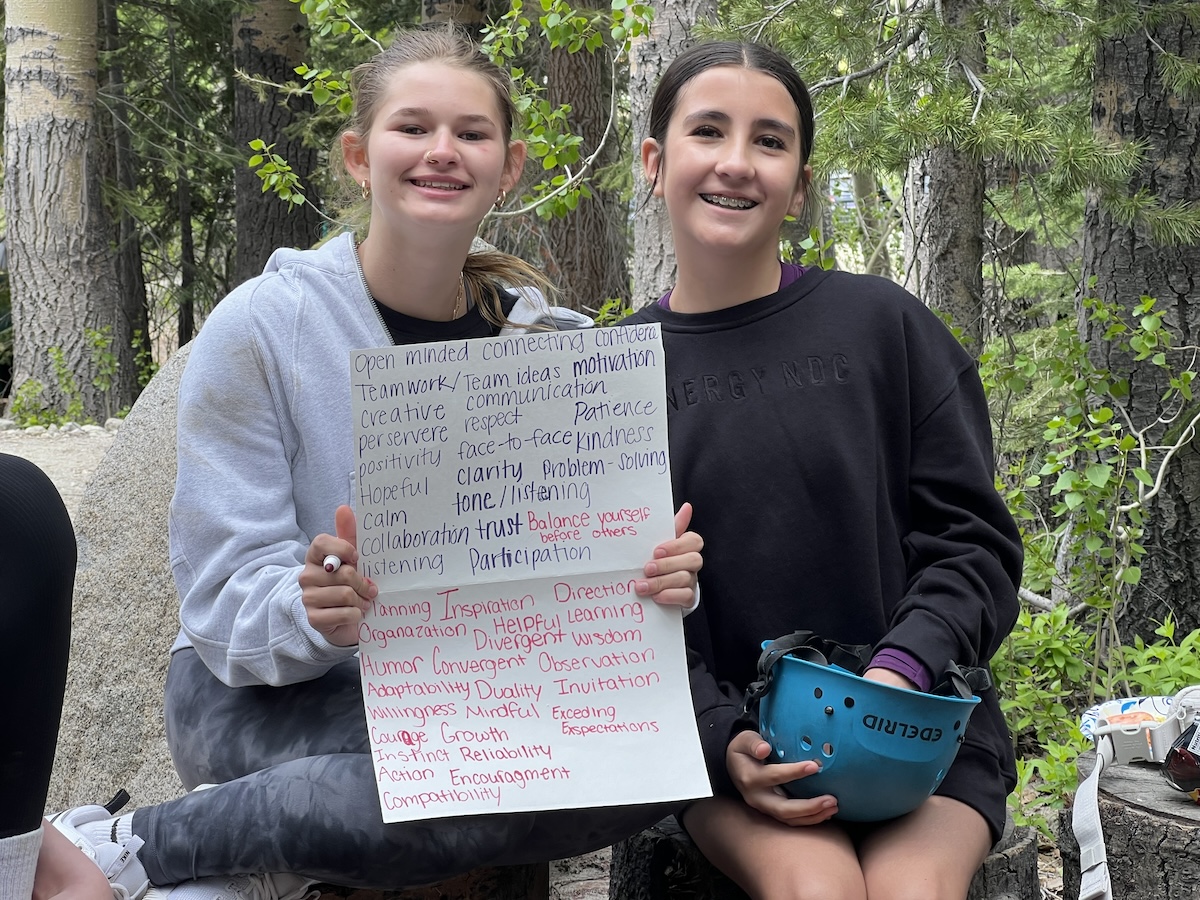 Open minded connecting confidence
Teamwork/Team ideas motivation
creative communication
perservere respect Patience
positivity face-to-face kindness
Hopeful clarity Problem-solving
calm tone/listening
collaboration trust Balance yourself
before others
listening Participation
Planning Inspiration Direction
Organazation Helpful Learning
Divergent Wisdom
Humor Convergent Observation
Adaptability Duality Invitation
Willingness Mindful Exceding
Expspectations
Courage Growth
Instinct Reliability
Action Encouragment
Compatibility
NERGY NDC
EDELRID